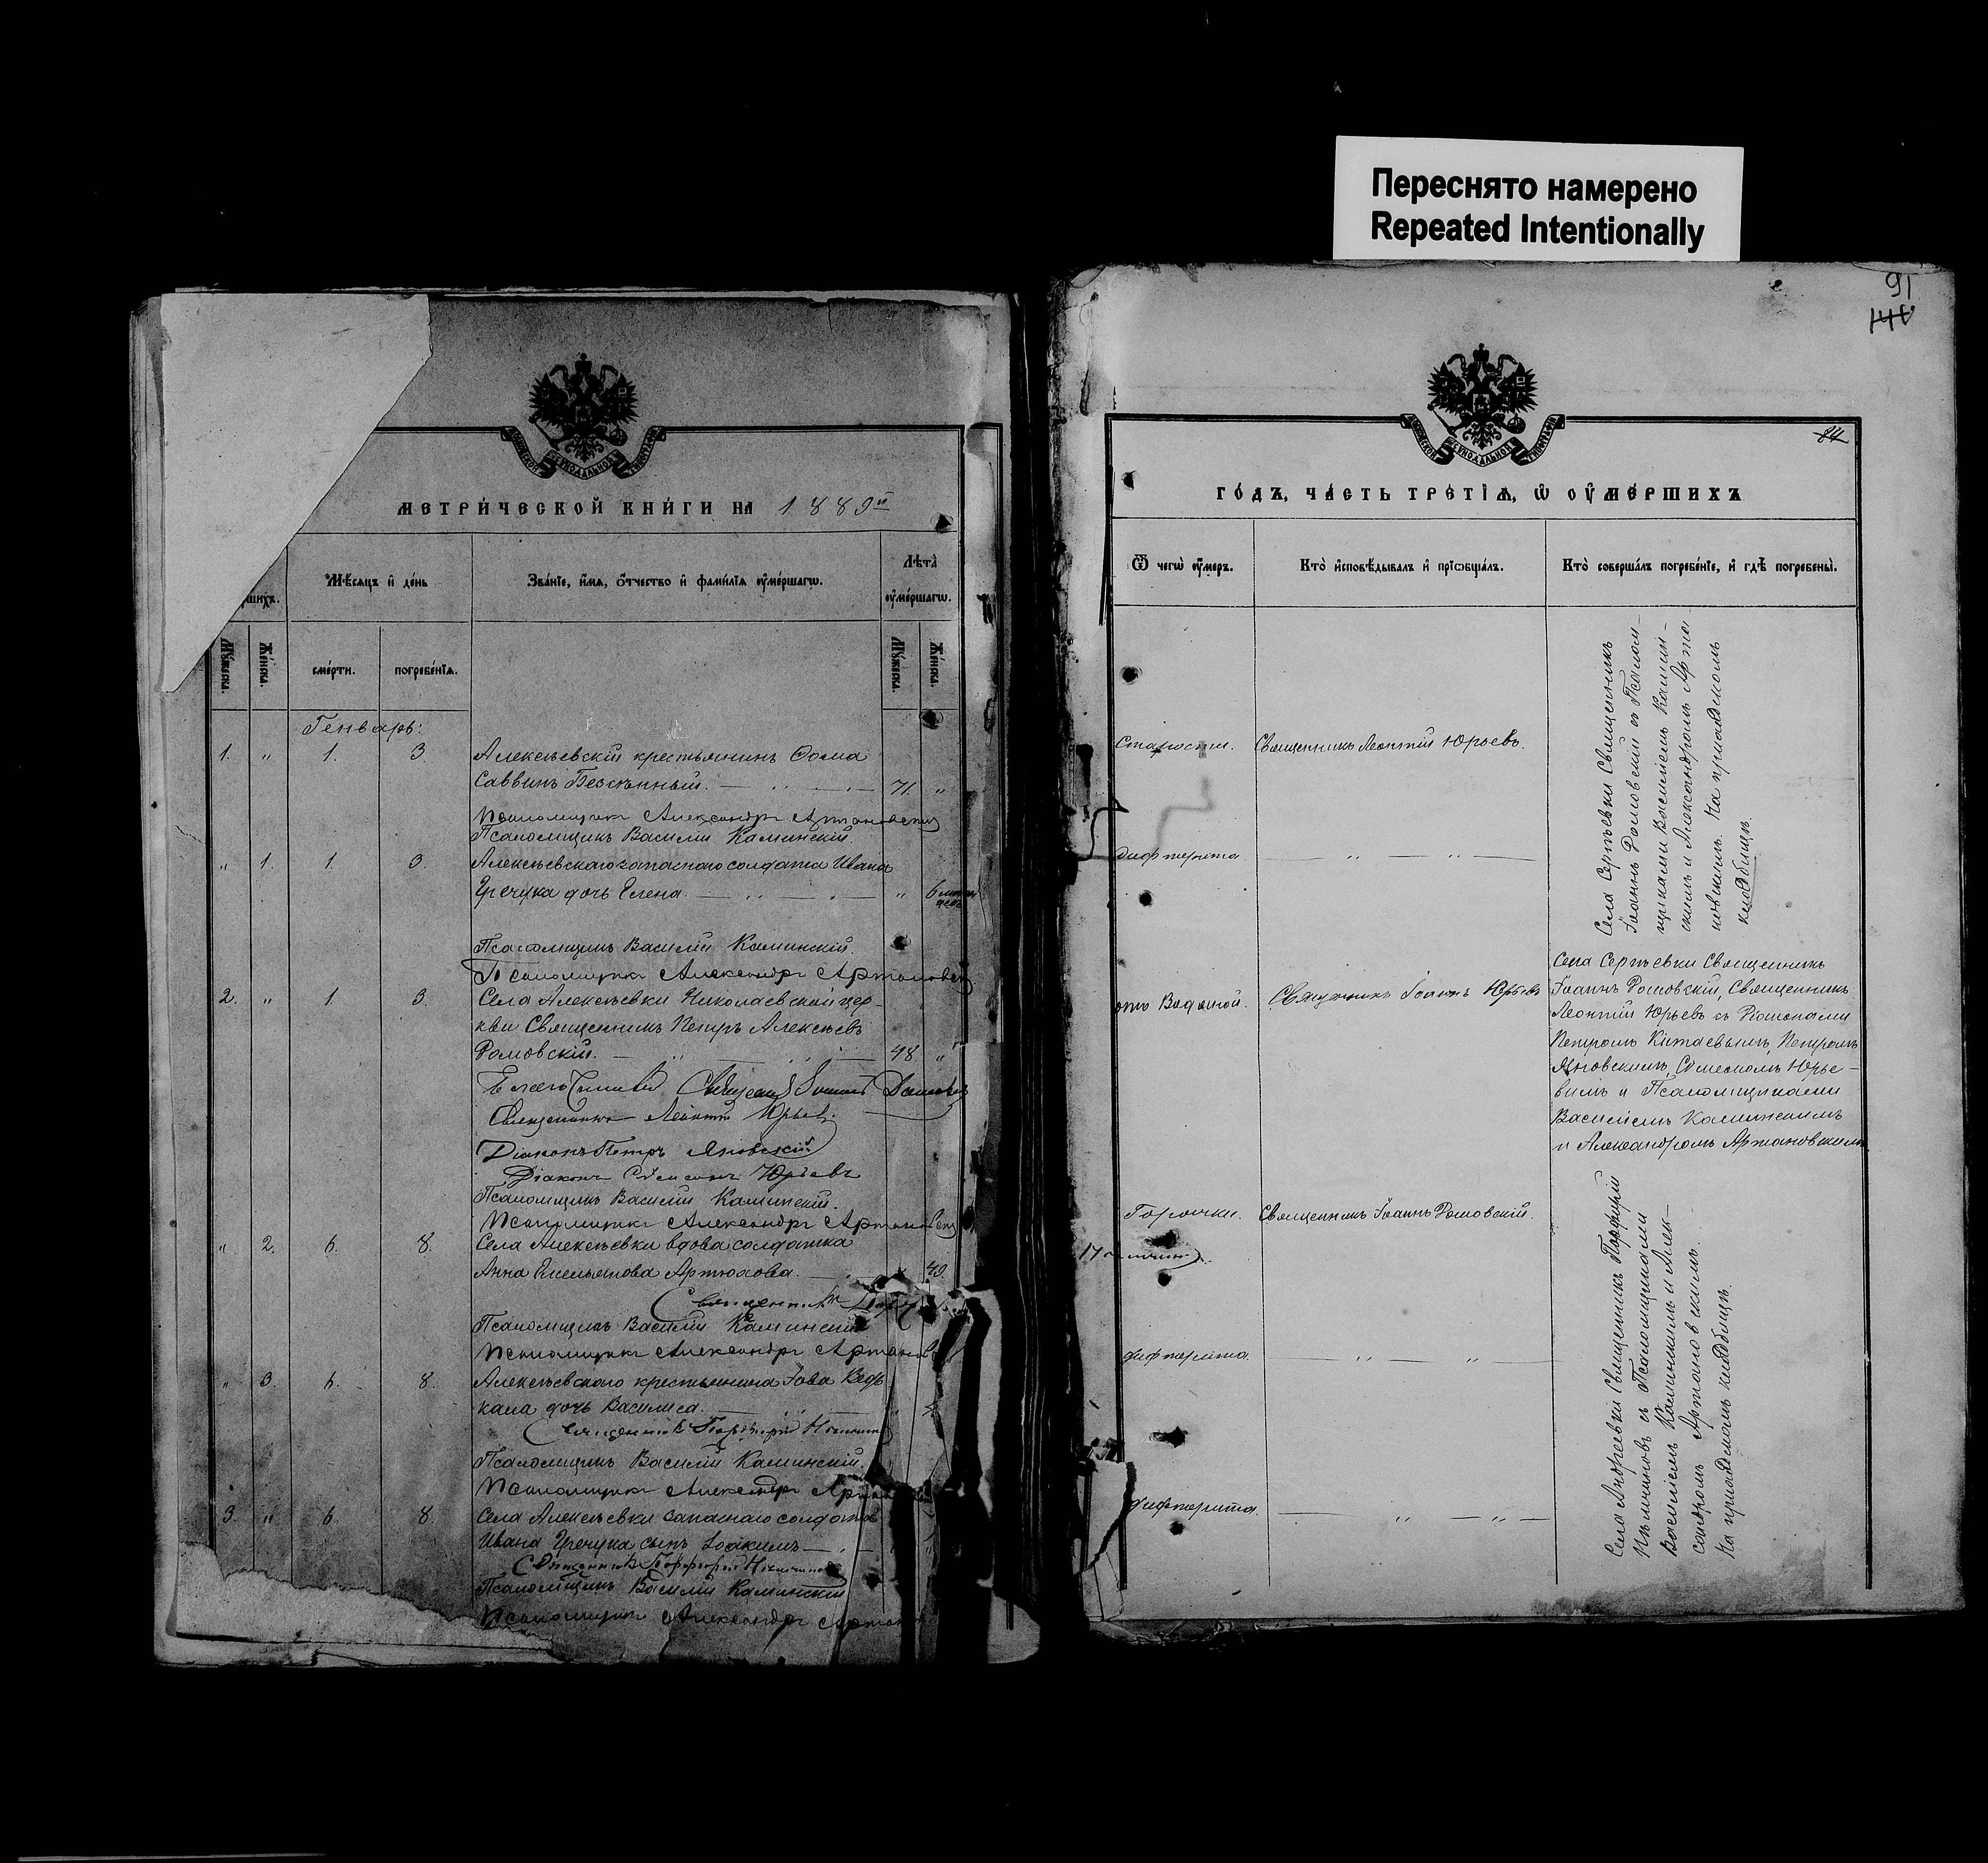 Переснято намерено
Repeated Intentionally
МЕТРИ́ЧЕСКОЙ КНИ́ГИ НА 1889й
ршихъ.
Мѣ́сяцъ и҆ де́нь
Зва́нїе, и҆́мя, ѻ҆́тчество и҆ фами́лїя ᲂу҆ме́ршагѡ.
Лѣта̀
ᲂу҆ме́ршагѡ.
Мꙋ́жеска.
Же́нска.
сме́рти.
погребе́нїя.
Мꙋ́жеска.
Же́нска.
Генварь:
1. " 1. 3. Алексѣевскій крестьянинъ Ѳома
Саввинъ Безсѣнный. 71. "
Псаломщикъ Александръ Артановскій
Псаломщикъ Василій Каминскій.
" 1. 1. 3. Алексѣевскаго запаснаго солдата Ивана
Гречука дочь Елена. " 6
Псаломщикъ Василій Каминскій.
Псаломщикъ Александръ Артановскій
2. " 1. 3. Села Алексѣевки Николаевской цер-
кви Священникъ Петръ Алексѣевъ
Ромовскій. 48. "
Священникъ Леонтій Юрьев.
Діаконъ Петръ Яновскій
Діаконъ Сѵмеонъ Юрьевъ
Псаломщикъ Василій Каминскій.
Псаломщикъ Александръ Артановскій
" 2. 6. 8. Села Алексѣевки вдова солдатка
Анна Емельянова Артюхова. 49.
Священникъ
Псаломщикъ Василій Каминскій
Псаломщикъ Александръ Артанов
" 3. 6. 8. Алексѣевскаго крестьянина Іова Кедь
кала дочь Василиса.
Священникъ Порфирій
Псаломщикъ Василій Каминскій.
Псаломщикъ Александръ Артан
3. " 6. 8. Села Алексѣевки запаснаго солдата
Ивана Гречука сынъ Іоакимъ
Священникъ Порфирій
Псаломщикъ Василій Каминскій
Псаломщикъ Александръ Артан
91
141
84
ГО́ДЪ, ЧА́СТЬ ТРЕ́ТЇѦ, Ѡ҆ ОУ҆МЕ́РШИХЪ
Ѿ чегѡ̀ ᲂу҆́меръ.
Кто̀ и҆сповѣ́дывалъ и҆ прїѡбща́лъ.
Кто̀ соверша́лъ погребе́нїе, и҆ гдѣ̀ погребены̀.
Старости. Священникъ Леонтій Юрьевъ.
Села Сергѣевки Священникъ
Іоаннъ Ромовскій съ Псалом-
щиками Василіемъ Камин-
скимъ и Александромъ Арта
новскимъ. На приходскомъ
кладбищѣ.
дифтерита. " "
отъ Водяной. Священникъ Іоаннъ Юрьевъ
Села Сергѣевки Священникъ
Іоаннъ Ромовскій, Священникъ
Леонтій Юрьевъ съ Діаконами
Петромъ Китаевымъ, Петромъ
Яновскимъ, Сѵмеономъ Юрье-
вымъ и Псаломщиками
Василіемъ Каминскимъ
и Александромъ Артановскимъ
Горячки. Священникъ Іоаннъ Ромовскій.
Села Андреевки Священникъ Порфирій
съ Псаломщиками
Василіемъ Каминскимъ и Алек-
сандромъ Артановскимъ.
На приходскомъ кладбищѣ.
дифтерита. " "
дифтерита. " "